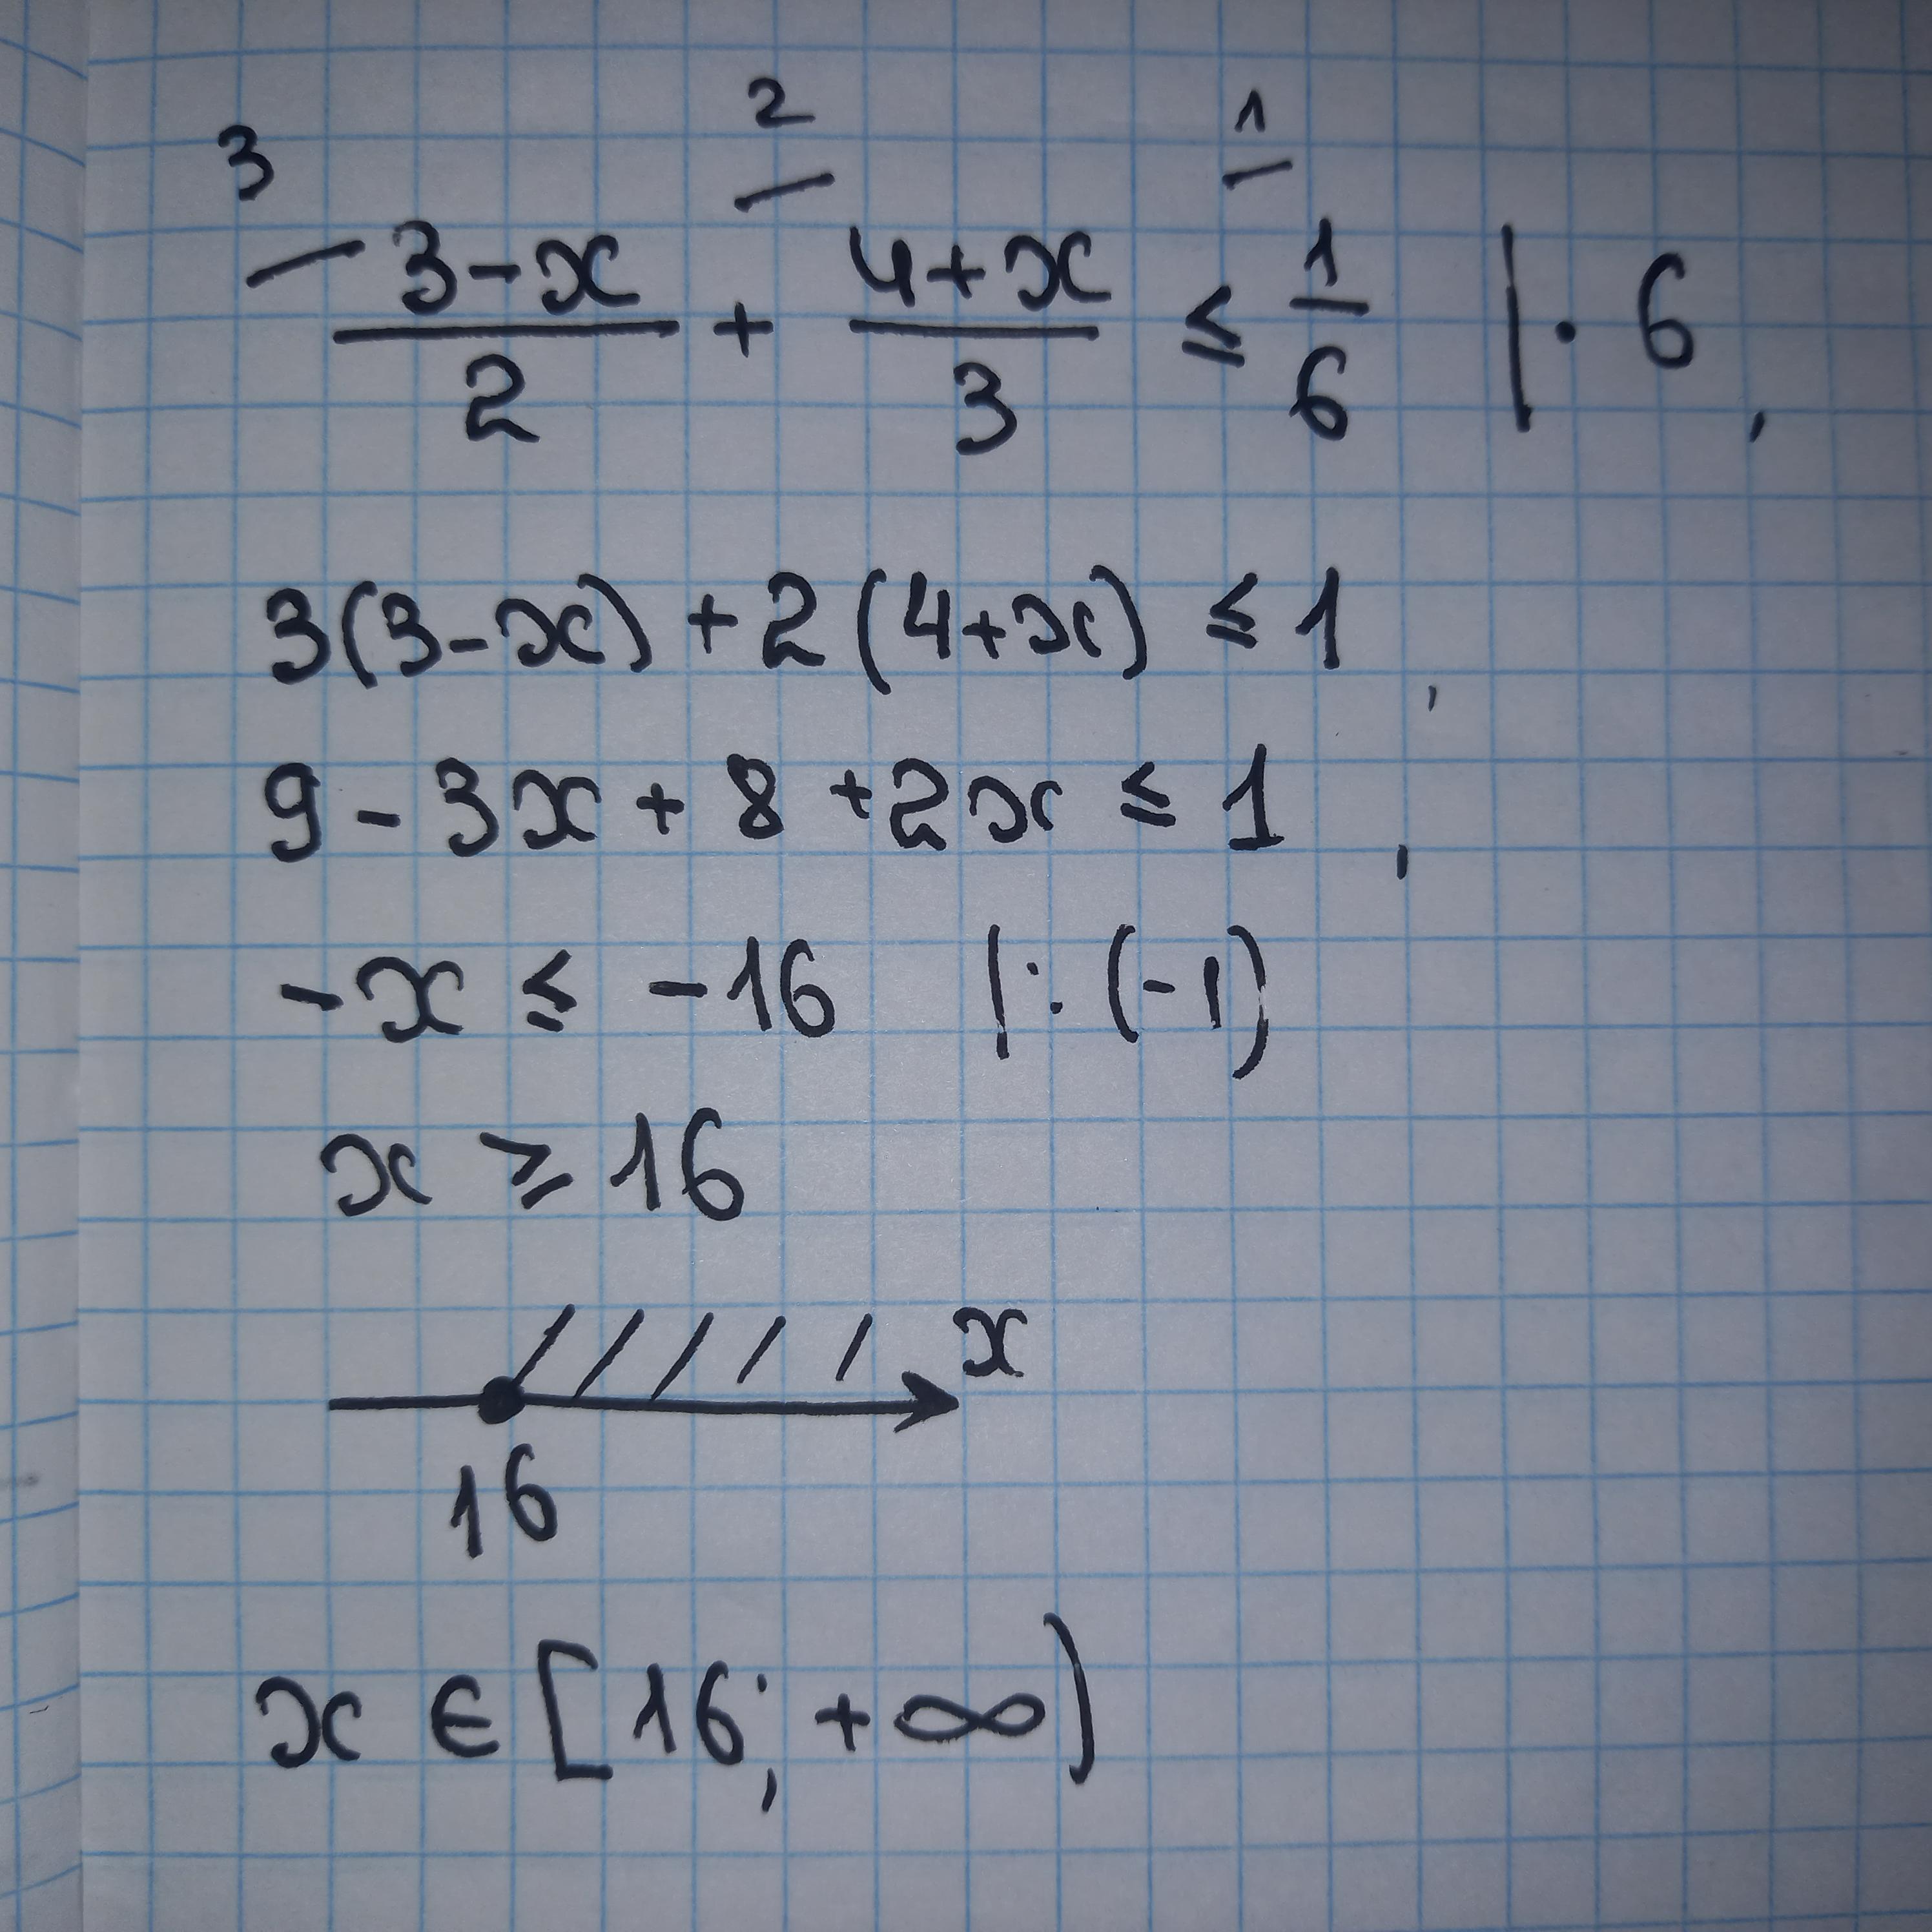 3 2 1
3-x/2 + 4+x/3 ≤ 1/6 | · 6,
3(3-x) + 2(4+x) ≤ 1,
9 - 3x + 8 + 2x ≤ 1,
-x ≤ -16 | : (-1)
x ≥ 16
x
16
x ∈ [16; +∞)